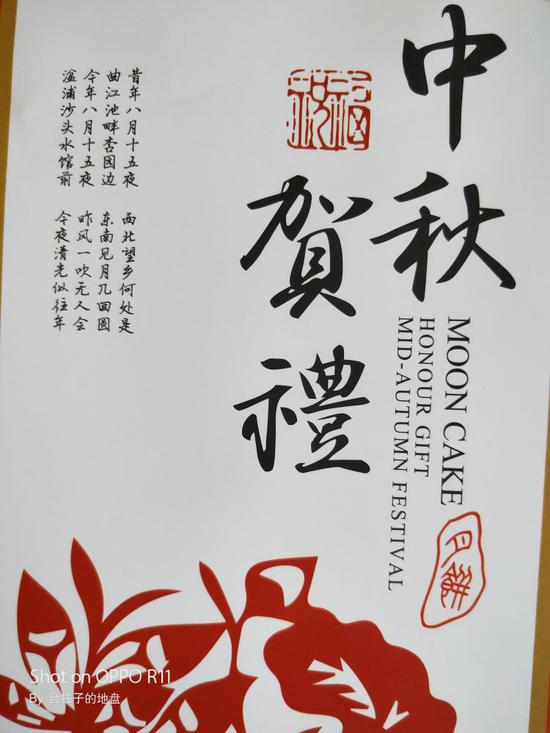 中秋
賀禮
MOON CAKE
HONOUR GIFT
MID-AUTUMN FESTIVAL
月餅
昔年八月十五夜
曲江池畔杏园边
今年八月十五夜
湓浦沙头水馆前
西北望乡何处是
东南见月几回圆
昨风一吹无人会
今夜清光似往年
Shot on OPPO R11
By 台柱子的地盘